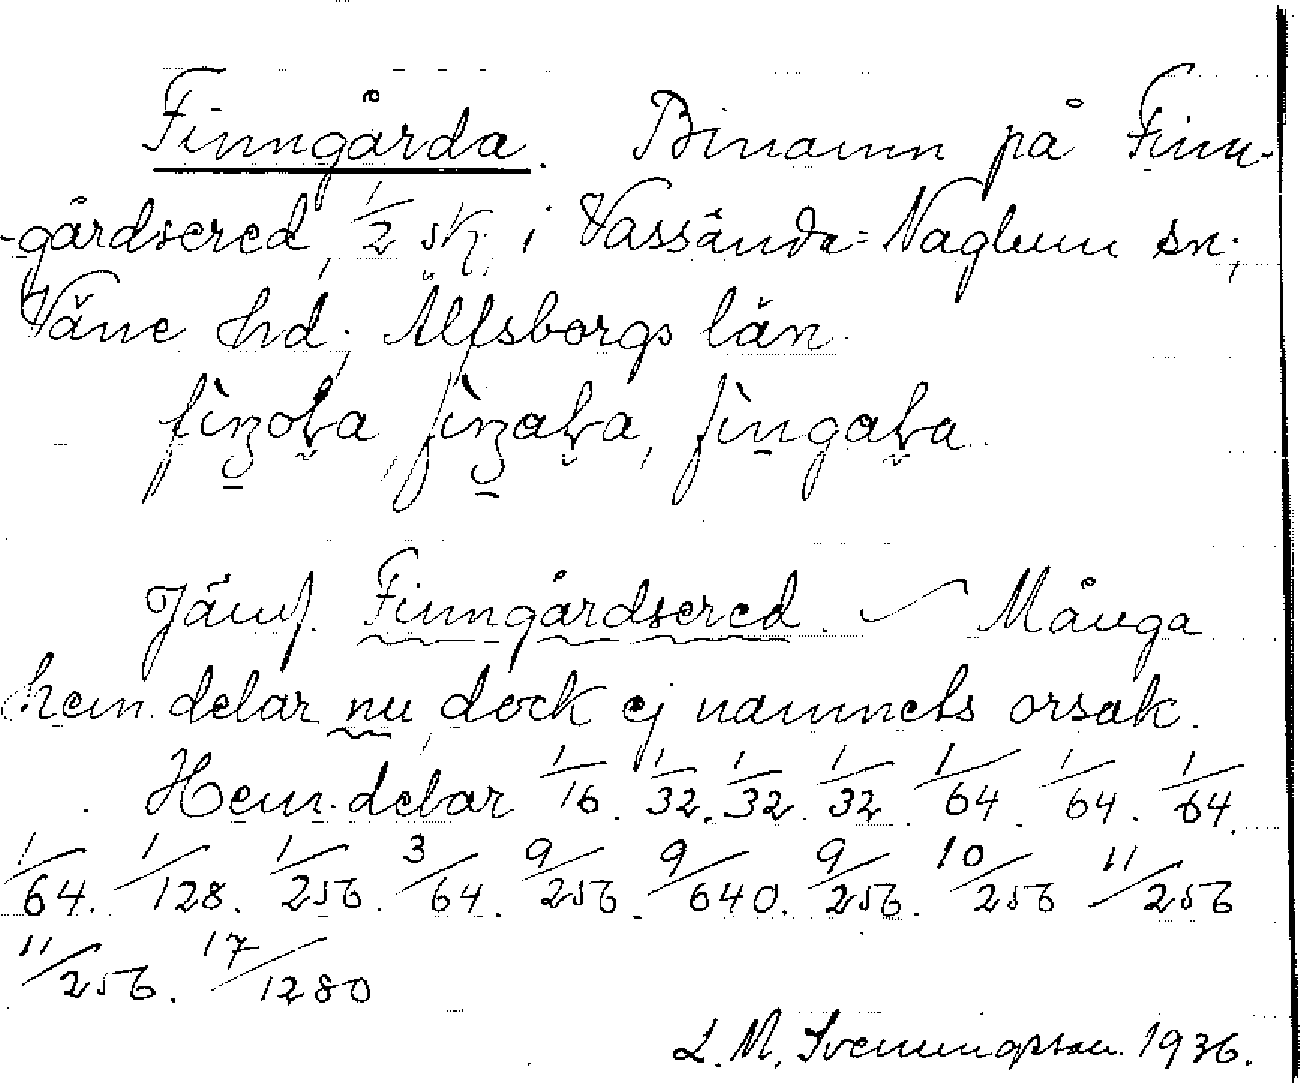 Finngårda. Binamn på Finn-
-gårdsered, 1/2 sk. i Vassända-Naglum sn;
Väne hd; Älfsborgs län.
Jämf. Finngårdsered. Många
hem. delar nu, dock ej namnets orsak.
Hem. delar 1/16. 1/32. 1/32. 1/32. 1/64. 1/64. 1/64.
1/64. 1/128. 1/256. 3/64. 9/256. 9/640. 9/256. 10/256 11/256
11/256. 17/1280
L. M. Svenungsson 1936.